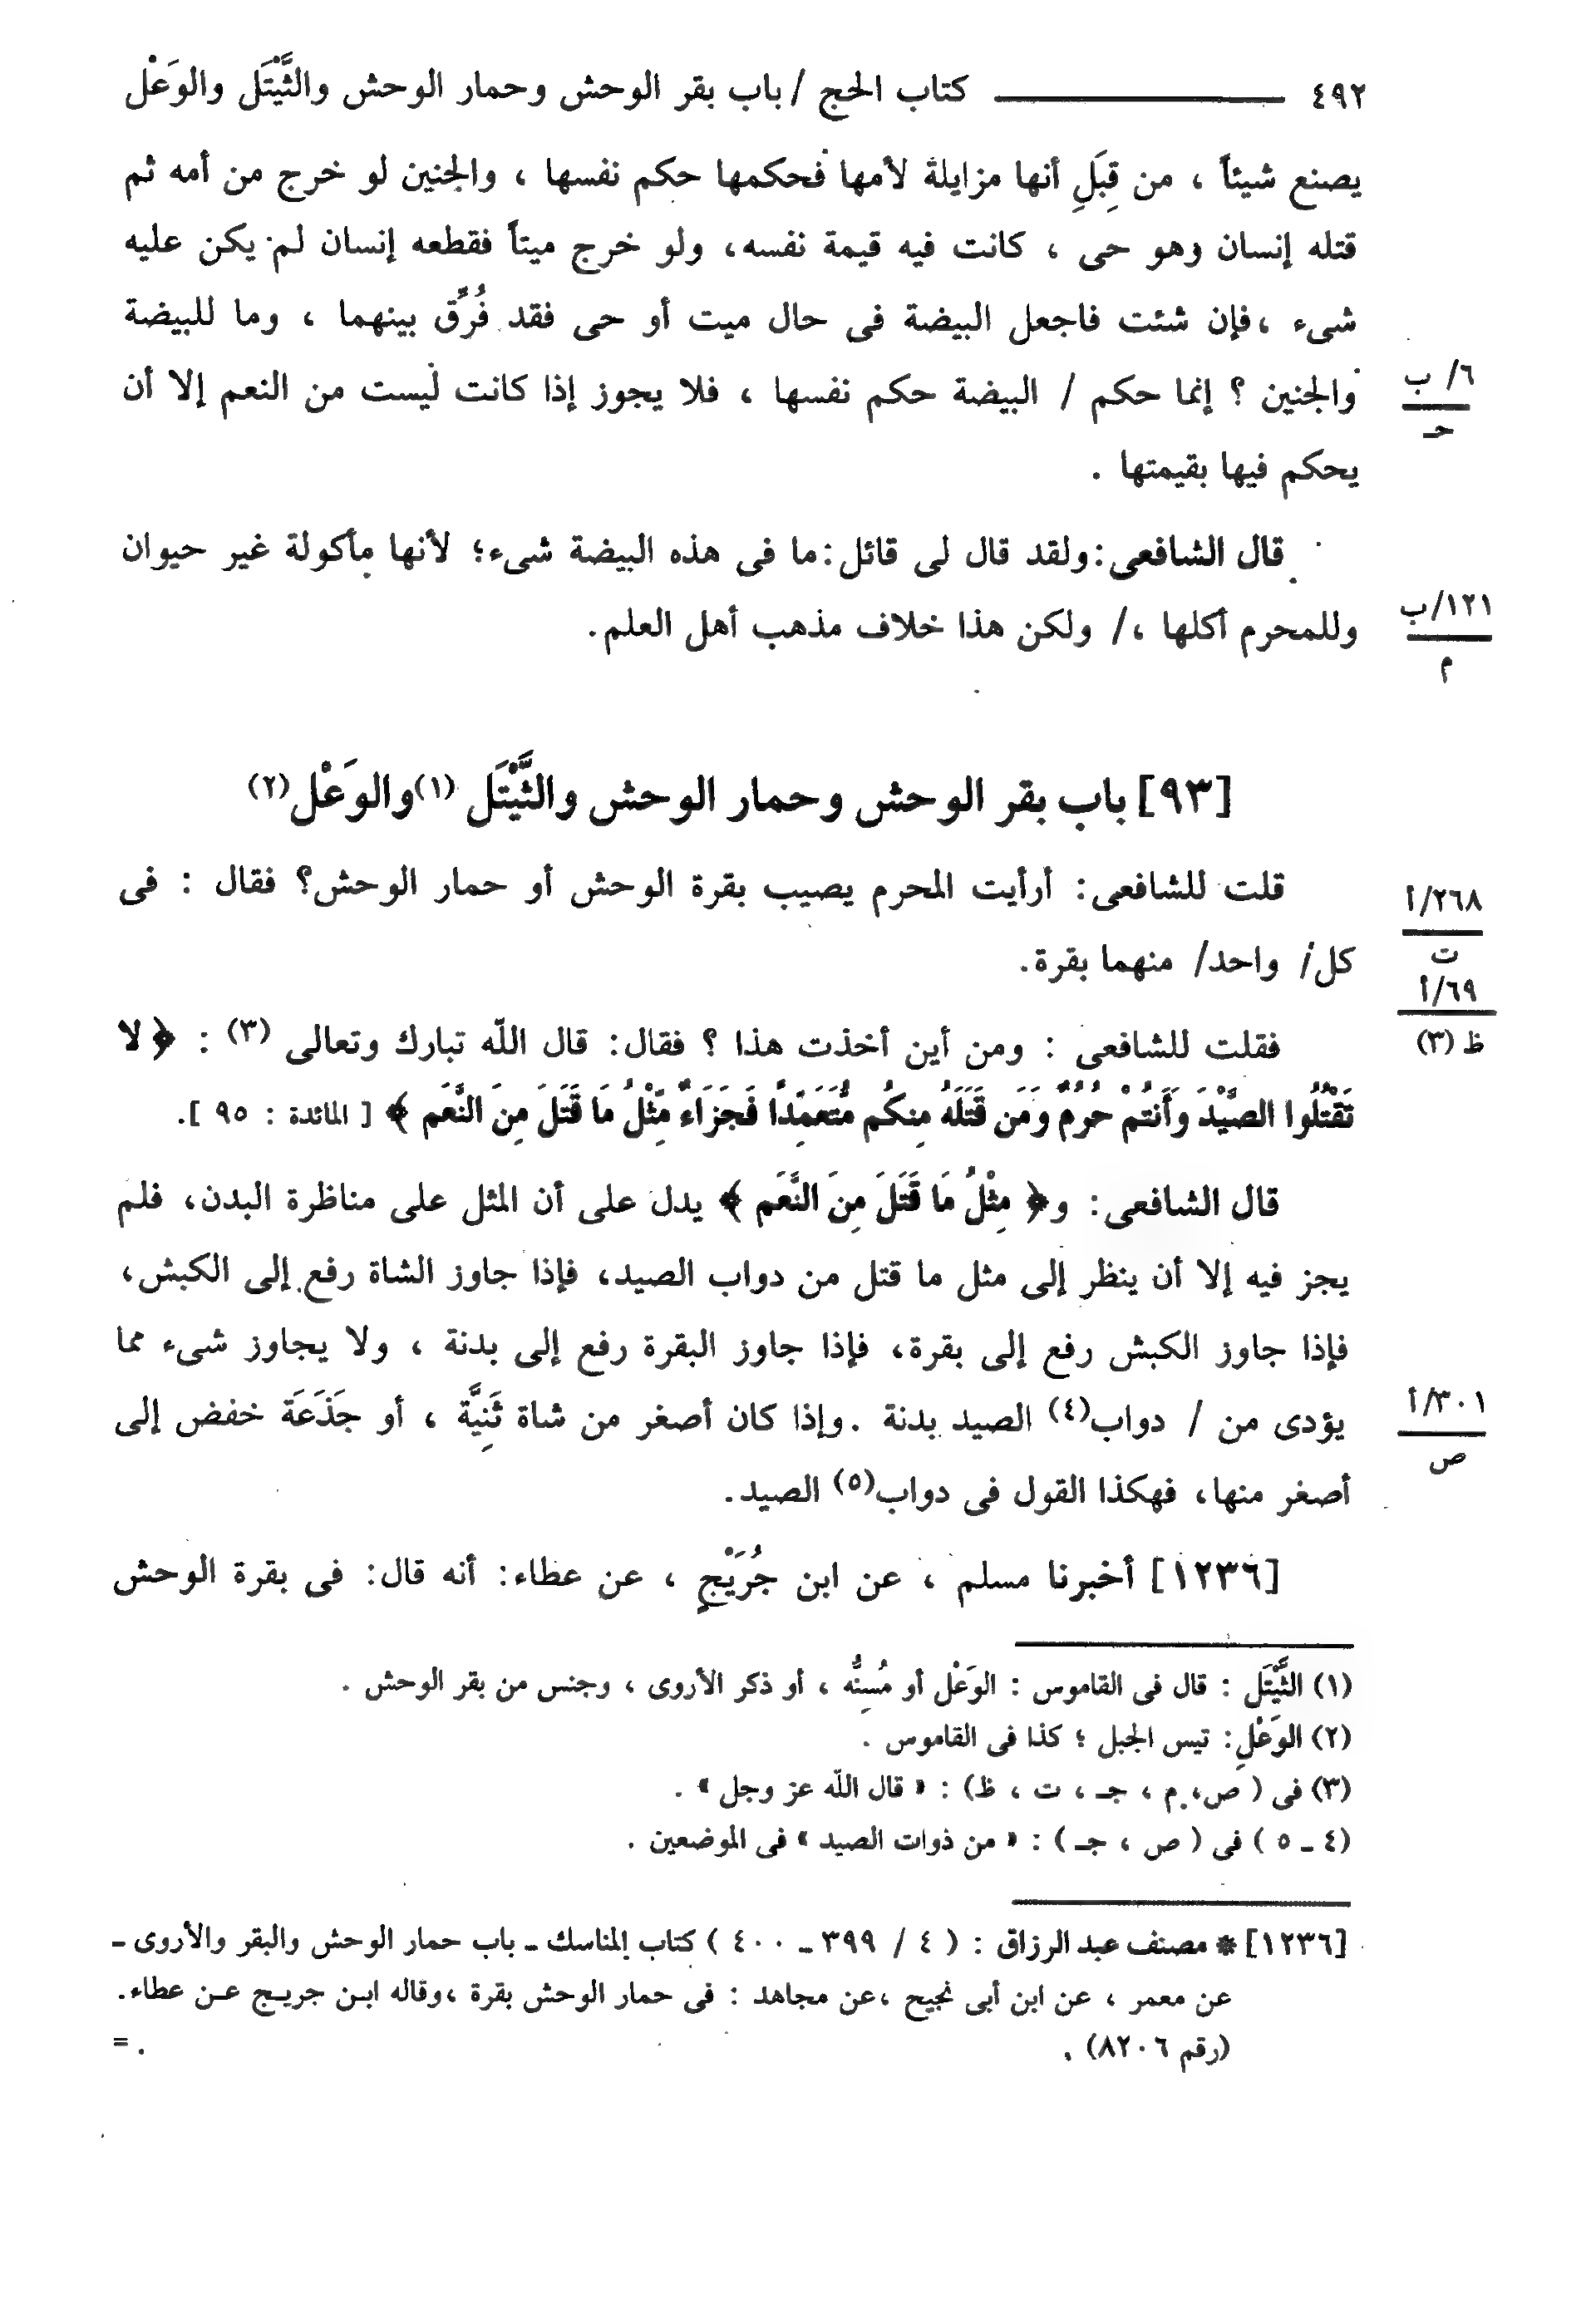 ٤٩٢ كتاب الحج / باب بقر الوحش وحمار الوحش والثَّيْتَل والوَعْل
يصنع شيئاً ، من قِبَلِ أنها مزايلة لأمها فحكمها حكم نفسها ، والجنين لو خرج من أمه ثم
قتله إنسان وهو حى ، كانت فيه قيمة نفسه، ولو خرج ميتاً فقطعه إنسان لم يكن عليه
شىء ،فإن شئت فاجعل البيضة فى حال ميت أو حى فقد فُرِّق بينهما ، وما للبيضة
والجنين ؟ إنما حكم / البيضة حكم نفسها ، فلا يجوز إذا كانت ليست من النعم إلا أن
٦/ ب
حـ
يحكم فيها بقيمتها .
قال الشافعى:ولقد قال لى قائل:ما فى هذه البيضة شىء؛ لأنها مأكولة غير حيوان
وللمحرم أكلها ،/ ولكن هذا خلاف مذهب أهل العلم.
١٢١/ب
م
[٩٣] باب بقر الوحش وحمار الوحش والثَّيْتَل (١)والوَعْل(٢)
قلت للشافعى: أرأيت المحرم يصيب بقرة الوحش أو حمار الوحش؟ فقال : فى
٢٦٨/أ
ت
كل/ واحد/ منهما بقرة.
٦٩/أ
ظ (٣)
فقلت للشافعى : ومن أين أخذت هذا ؟ فقال: قال اللّه تبارك وتعالى (٣) : ﴿ لا
تَقْتُلُوا الصَّيْدَ وَأَنتُمْ حُرُمٌ وَمَن قَتَلَهُ مِنكُم مُّتَعَمِّدًا فَجَزَاءٌ مِّثْلُ مَا قَتَلَ مِنَ النَّعَمِ ﴾ [ المائدة : ٩٥ ].
قال الشافعى: و﴿ مِثْلُ مَا قَتَلَ مِنَ النَّعَمِ ﴾ يدل على أن المثل على مناظرة البدن، فلم
يجز فيه إلا أن ينظر إلى مثل ما قتل من دواب الصيد، فإذا جاوز الشاة رفع إلى الكبش،
فإذا جاوز الكبش رفع إلى بقرة، فإذا جاوز البقرة رفع إلى بدنة ، ولا يجاوز شىء مما
يؤدى من / دواب(٤) الصيد بدنة .وإذا كان أصغر من شاة ثَنِيَّة ، أو جَذَعَة خفض إلى
٣٠١/أ
ص
أصغر منها، فهكذا القول فى دواب(٥) الصيد.
[١٢٣٦] أخبرنا مسلم ، عن ابن جُرَيْجٍ ، عن عطاء: أنه قال: فى بقرة الوحش
(١) الثَّيْتَل : قال فى القاموس : الوَعْل أو مُسِنُّه ، أو ذكر الأروى ، وجنس من بقر الوحش .
(٢) الوَعْلِ: تيس الجبل ؛ كذا فى القاموس .
(٣) فى ( ص، م ، جـ ، ت ، ظ) : « قال اللّه عز وجل » .
(٤ ـ ٥ ) فى ( ص ، جـ ) : « من ذوات الصيد » فى الموضعين .
[١٢٣٦] * مصنف عبد الرزاق : ( ٤ / ٣٩٩ ـ ٤٠٠ ) كتاب المناسك ـ باب حمار الوحش والبقر والأروى ـ
عن معمر ، عن ابن أبى نجيح ،عن مجاهد : فى حمار الوحش بقرة ،وقاله ابـن جريـج عـن عطاء.
(رقم ٨٢٠٦) . =